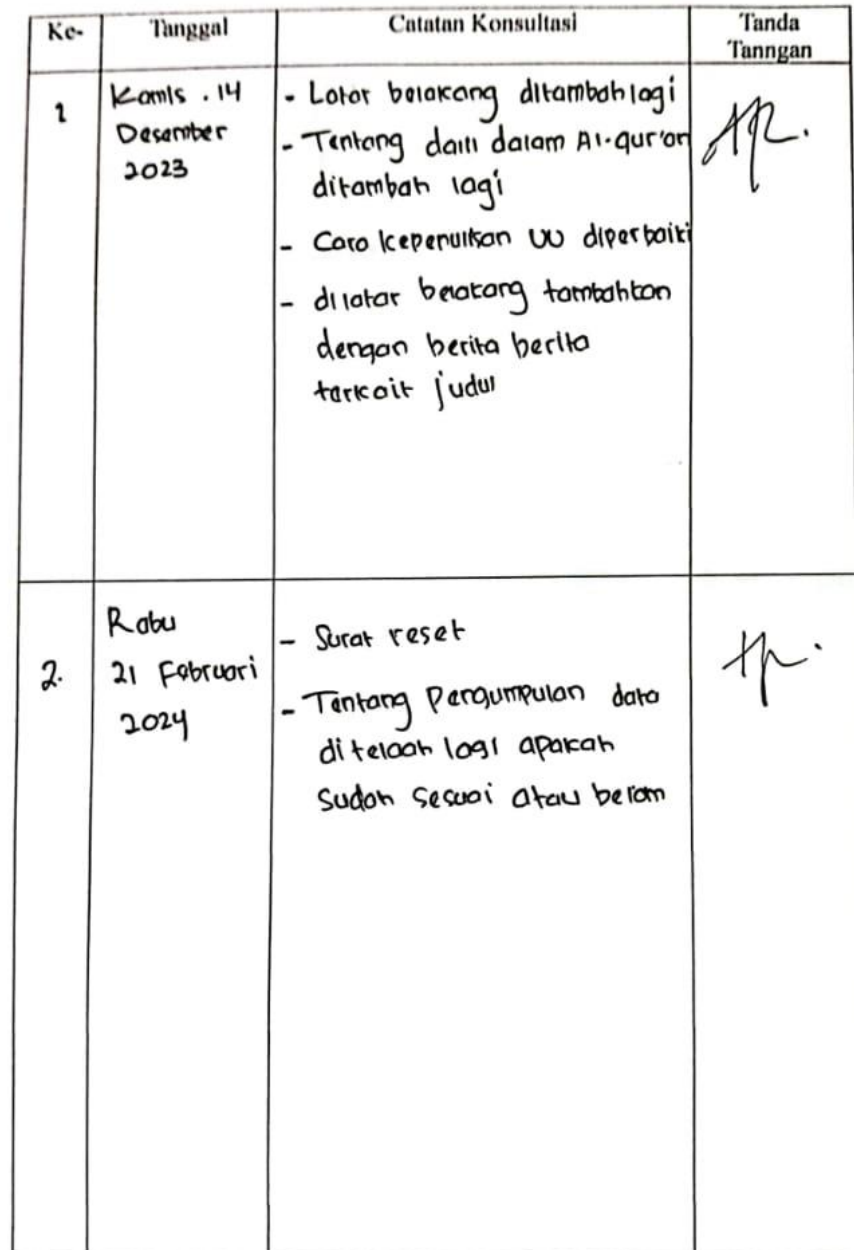 Ke- Tanggal Catatan Konsultasi Tanda Tanngan
1
Kamis . 14
Desember
2023
- Latar belakang ditambah lagi
- Tentang dalil dalam Al-qur'an
ditambah lagi
- Cara kepenulisan UU diperbaiki
- dilatar belakang tambahkan
dengan berita berita
terkait judul
2.
Rabu
21 Februari
2024
- Surat reset
- Tentang Pengumpulan data
di telaah lagi apakah
sudah sesuai atau belom